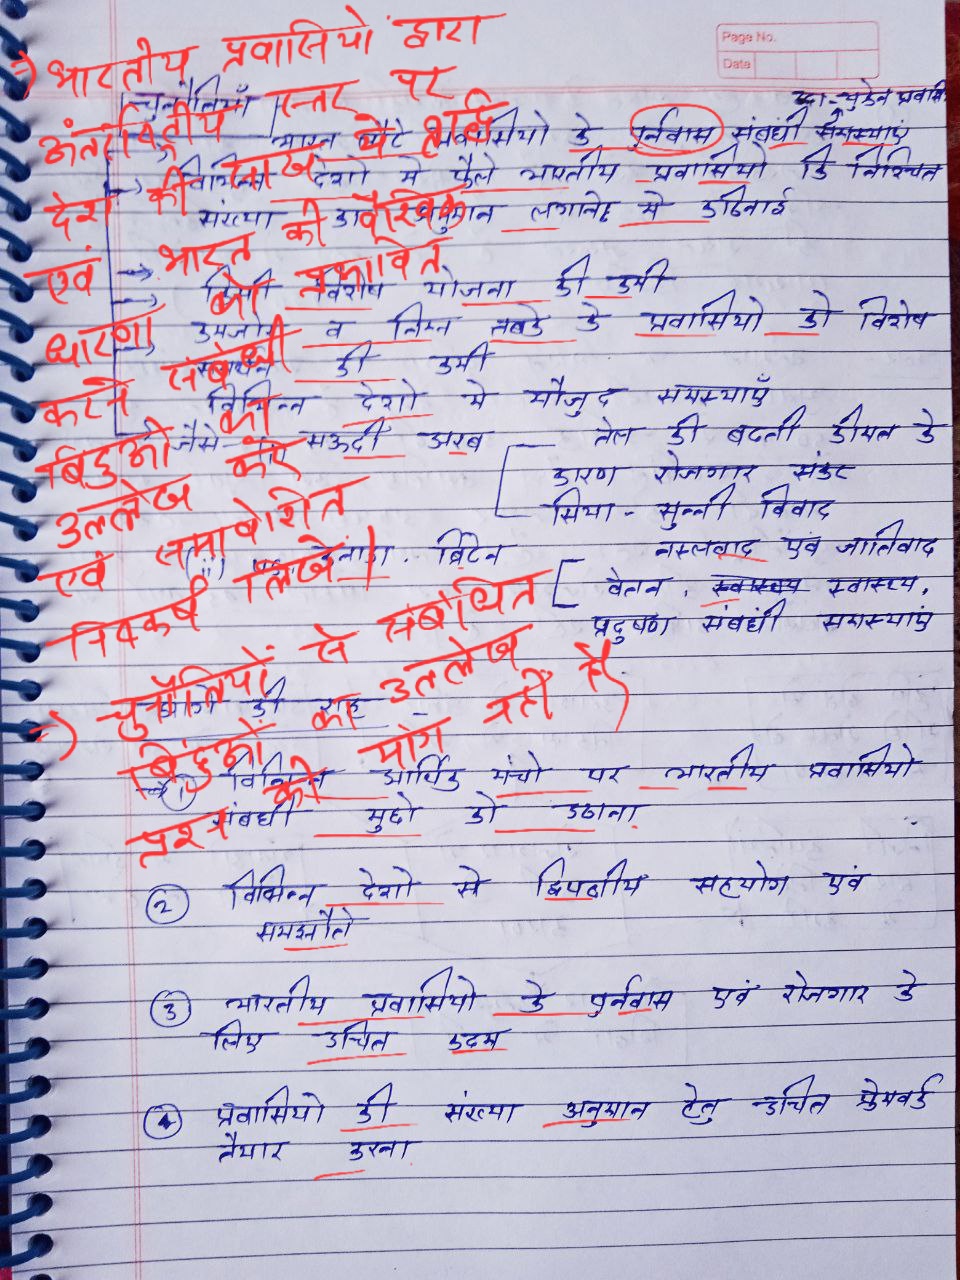 Page No.
Date
=) भारतीय प्रवासियों द्वारा
अंतर्राष्ट्रीय स्तर पर
देश की साख में वृद्धि
एवं भारत की वैश्विक
धारणा को प्रभावित
करने संबंधी
बिंदुओं का
उल्लेख करें
एवं समावेशित
निष्कर्ष लिखें।
=) चुनौतियों से संबंधित
बिंदुओं का उल्लेख
प्रश्न की मांग नहीं है
चुनौतियाँ
भारत लौटे प्रवासियो के पुर्नवास संबंधी समस्याएं
विभिन्न देशो मे फैले भारतीय प्रवासियो कि निश्चित
संख्या का अनुमान लगानेह मे कठिनाई
किसी विशेष योजना की कमी
कमजोर व निम्न तबके के प्रवासियो को विशेष
की कमी
विभिन्न देशो मे मौजुद समस्याएँ
जैसे सऊदी अरब तेल की बढती कीमत के
कारण रोजगार संकट
सिया - सुन्नी विवाद
कनाडा. ब्रिटेन नस्लवाद एवं जातिवाद
वेतन, स्वास्थ्य,
प्रदुषण संबंधी समस्याएं
आगे की राह -
1 विभिन्न आर्थिक मंचो पर भारतीय प्रवासियो
संबधी मुद्दो को उठाना
2 विभिन्न देशो से द्विपक्षीय सहयोग एवं
समझौते
3 भारतीय प्रवासियो के पुर्नवास एवं रोजगार के
लिए उचित कदम
4 प्रवासियो की संख्या अनुमान हेतु उचित फ्रेमवर्क
तैयार करना